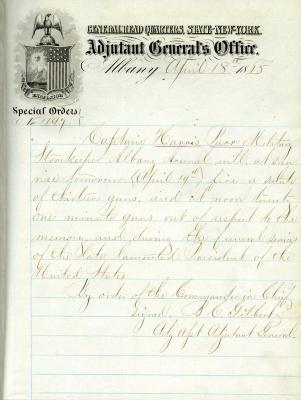 GENERAL HEAD QUARTERS, STATE-NEW-YORK.
Adjutant General's Office.
Albany April 18th 1865
EXCELSIOR
Special Orders
No 197
Captain Harris Parr Military
Storekeeper Albany Arsenal will at sun
rise tomorrow (April 19th) fire a salute
of thirteen guns, and at noon twenty
one minute guns out of respect to the
memory and during the funeral services
of the late lamented President of the
United States
By order of the Commander in Chief
Signed.
Adjutant General.